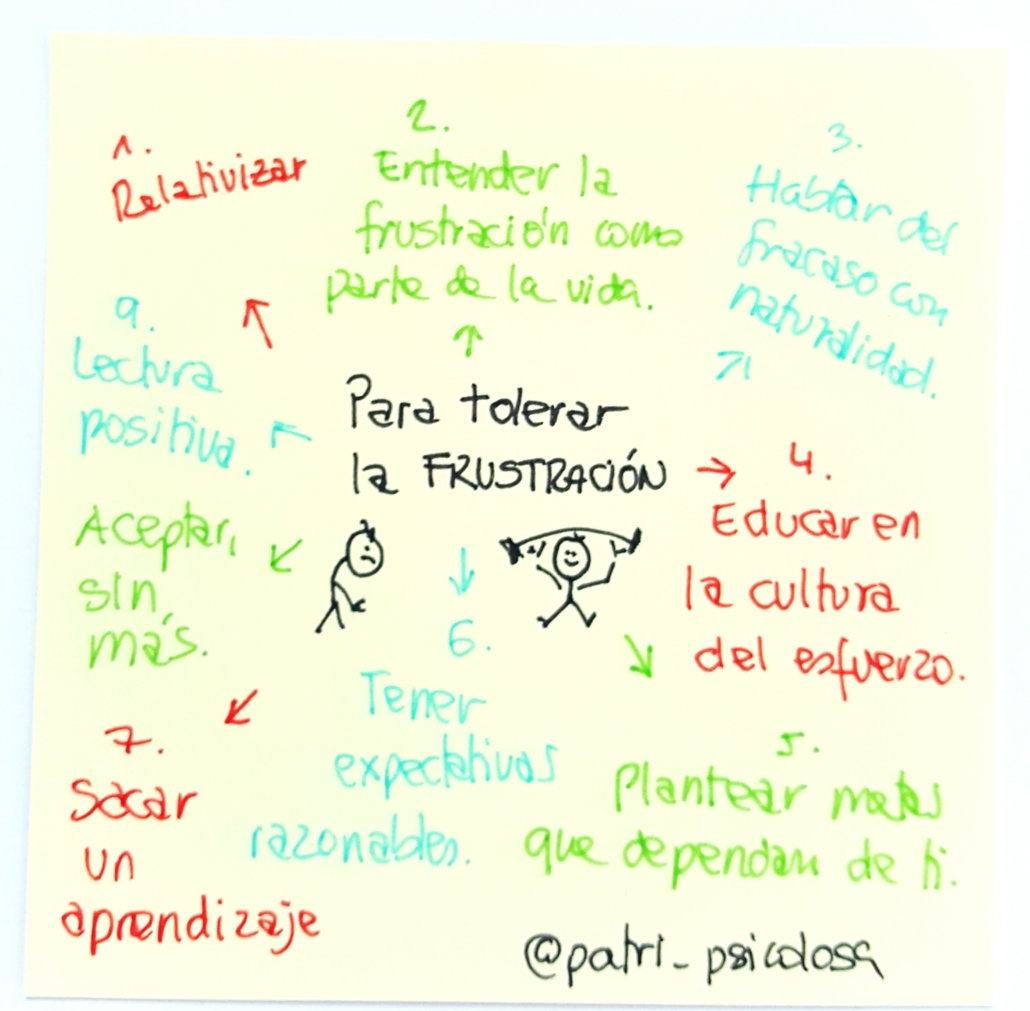 1.
Relativizar
2.
Entender la
frustración como
parte de la vida.
3.
Hablar del
fracaso con
naturalidad.
Para tolerar
la FRUSTRACIÓN
4.
Educar en
la cultura
del esfuerzo.
5.
Plantear metas
que dependan de ti.
6.
Tener
expectativas
razonables.
7.
Sacar
un
aprendizaje
Aceptar,
sin
más.
9.
Lectura
positiva.
@patri_psicologa